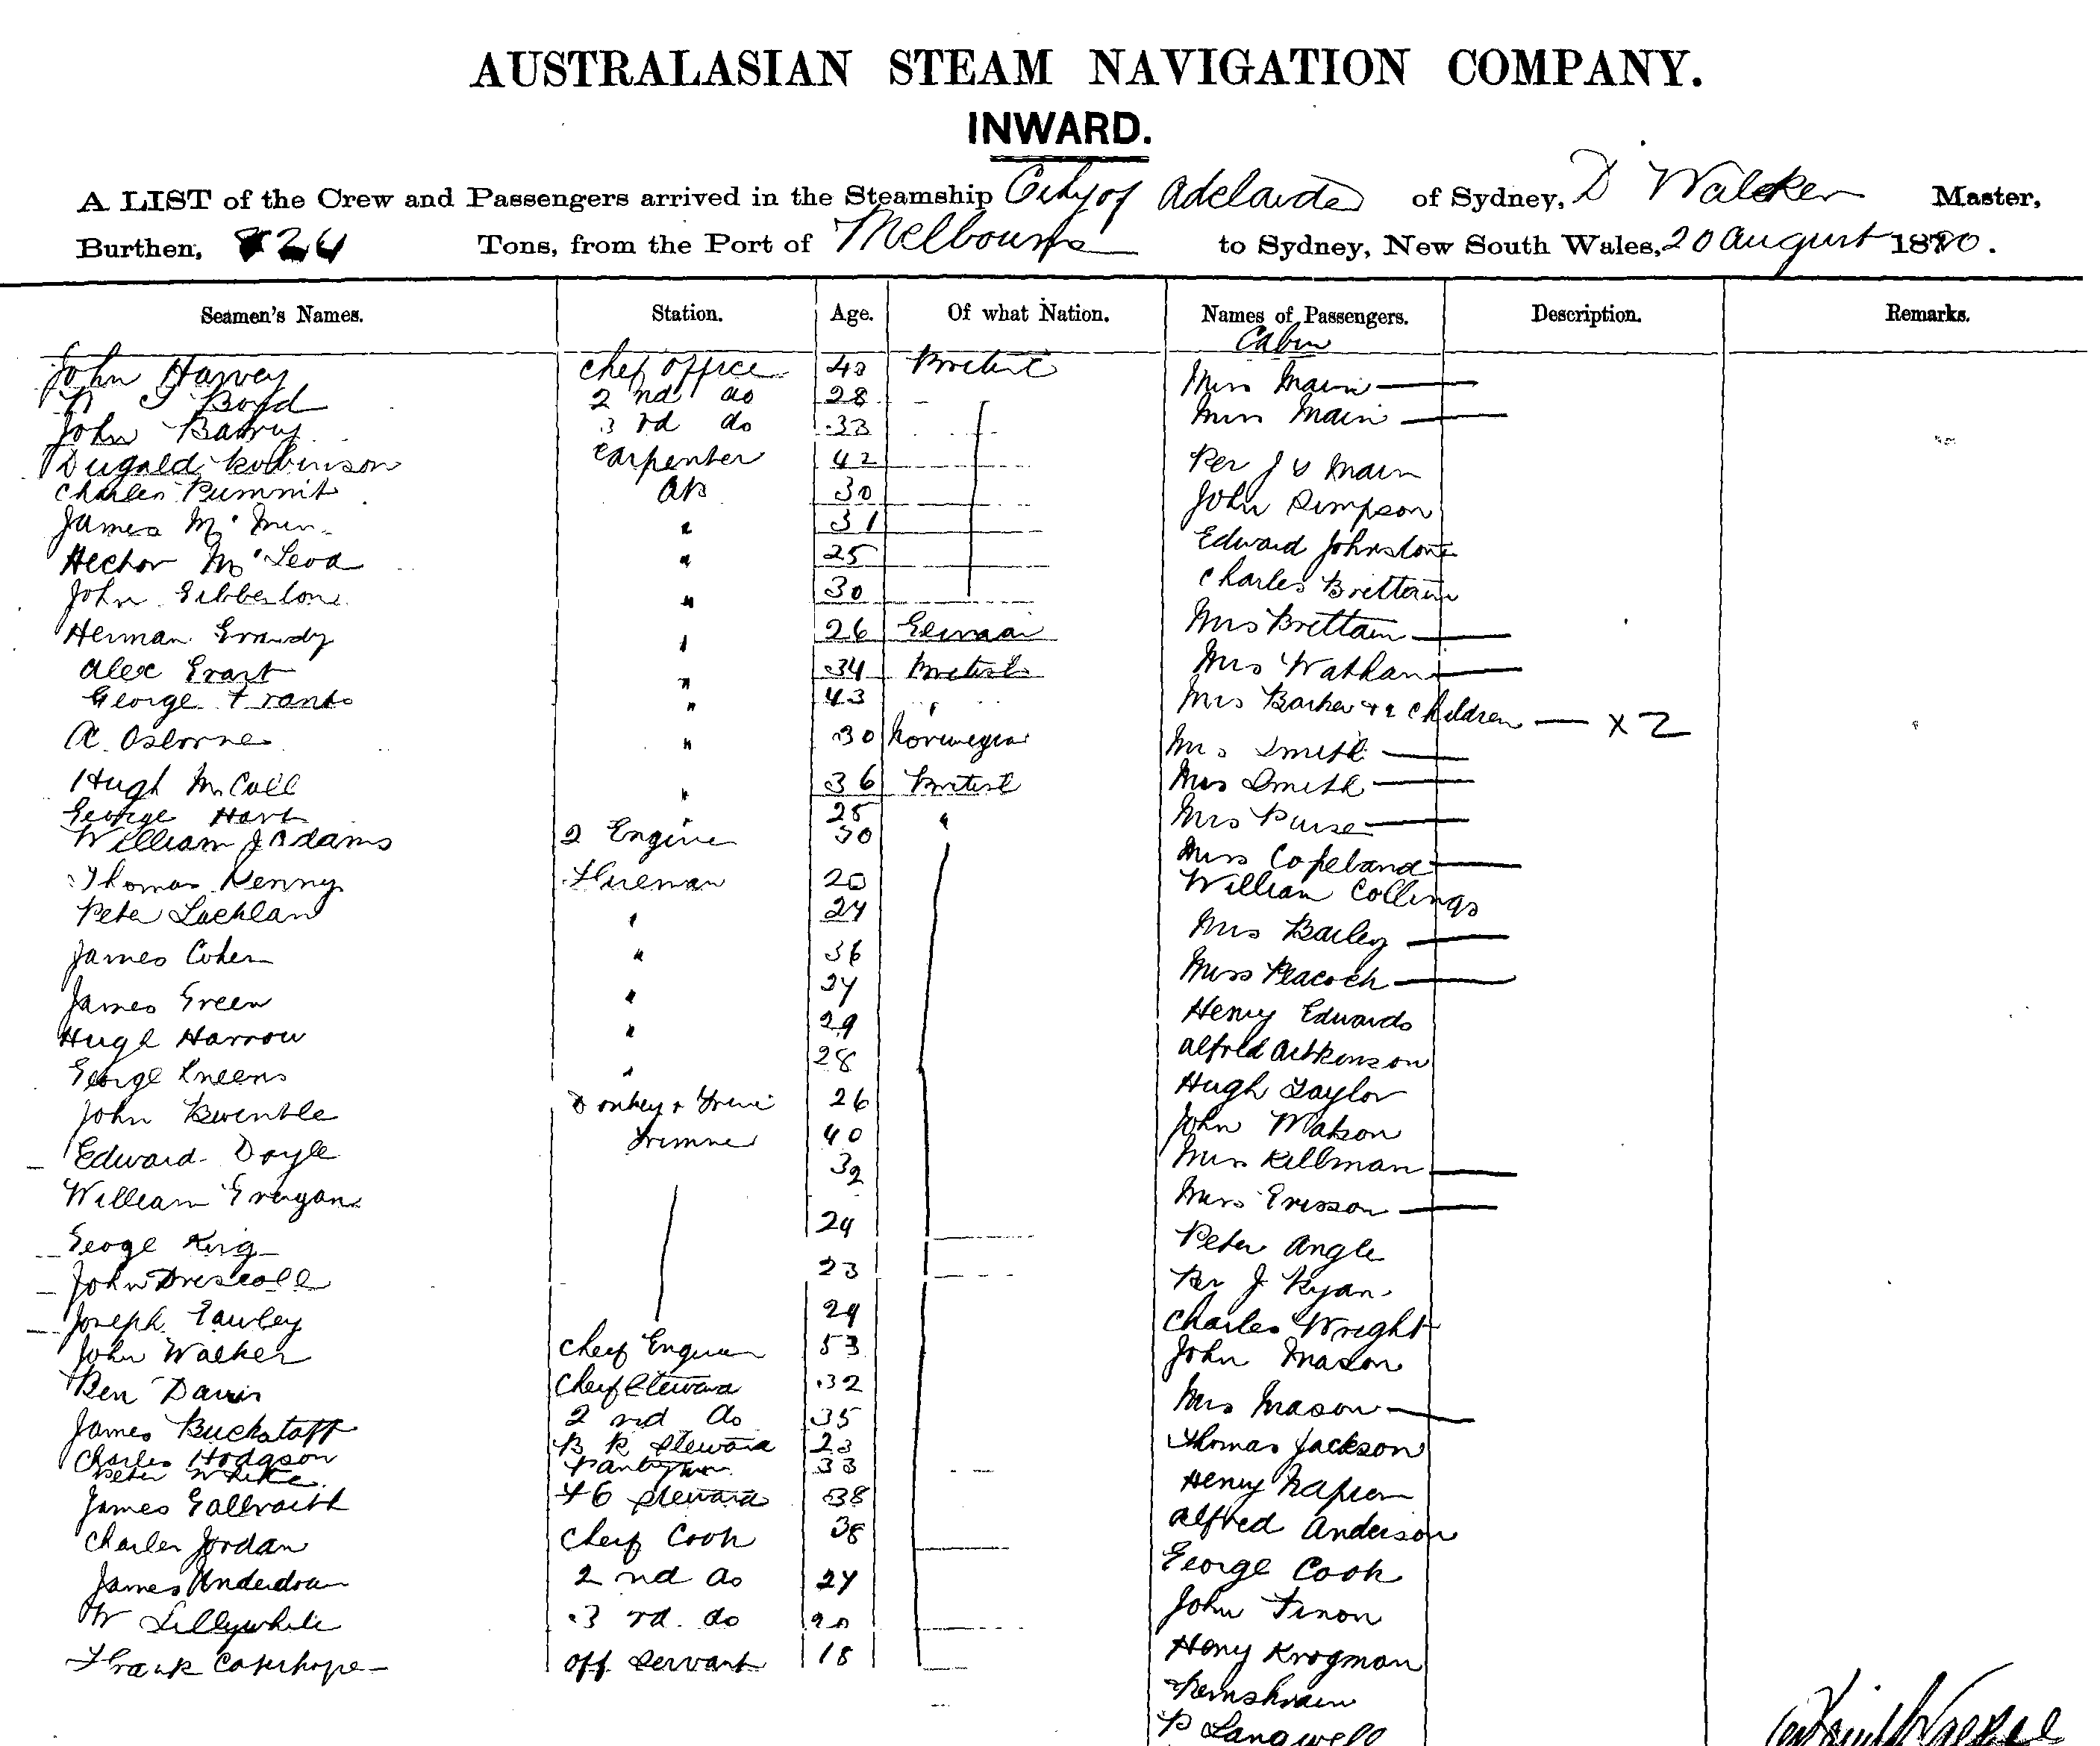 AUSTRALASIAN STEAM NAVIGATION COMPANY.
INWARD.
A LIST of the Crew and Passengers arrived in the Steamship City of Adelaide of Sydney, D Walker Master,
Burthen, 824 Tons, from the Port of Melbourne to Sydney, New South Wales, 20 August 1880.
Seamen's Names. Station. Age. Of what Nation. Names of Passengers. Description. Remarks.
Cabin
John Harvey Chef Office 40 British Miss Main
Boyd 2nd do 28 Miss Main
John Barry 3rd do 33
Dugald Robinson Carpenter 42 Rev J Main
Charles AB 30 John Simpson
James Mc 31 Edward Johnstone
Hector McLeod " 25 Charles Brettain
John Gibbestone " 30 Mrs Brettain
Herman Grandy " 26 German Mrs Wathan
Alex Grant " 34 British Mrs Barker & 2 Children x 2
George Franks " 43 "
A. Osborne " 30 Norwegian Mrs Smith
Hugh McCall " 36 British Miss Smith
George Hart " 25 " Mrs Purse
William J Adams 2 Engine 30 Miss Copeland
Thomas Kenny Fireman 20 William Collings
Peter Lachlan " 24 Mrs Bailey
James Cohen " 36 Miss Peacock
James Green " 24 Henry Edwards
Hugh Harrow " 29 Alfred Aitkenson
George Kneens " 28 Hugh Taylor
John 26 John Matson
Edward Doyle Trimmer 40 Miss Killman
William Grayson 32 Mrs Ericson
George King 24 Peter Angle
John Driscoll 23 J Ryan
Joseph Cawley 29 Charles Wright
John Walker Cheif Engineer 53 John Mason
Ben Davis Cheif Steward 32 Mrs Mason
James Buckstaff 2nd do 35 Thomas Jackson
Charles Hodgson B R Steward 23
Peter White Pantryman 33 Henry Napier
James Gallraith Steward 38 Alfred Anderson
Charles Jordan Cheif Cook 38 George Cook
James Anderson 2nd do 24 John Finon
W Lillywhite 3rd do 20 Henry Krogman
Frank off Servant 18
P Langwell